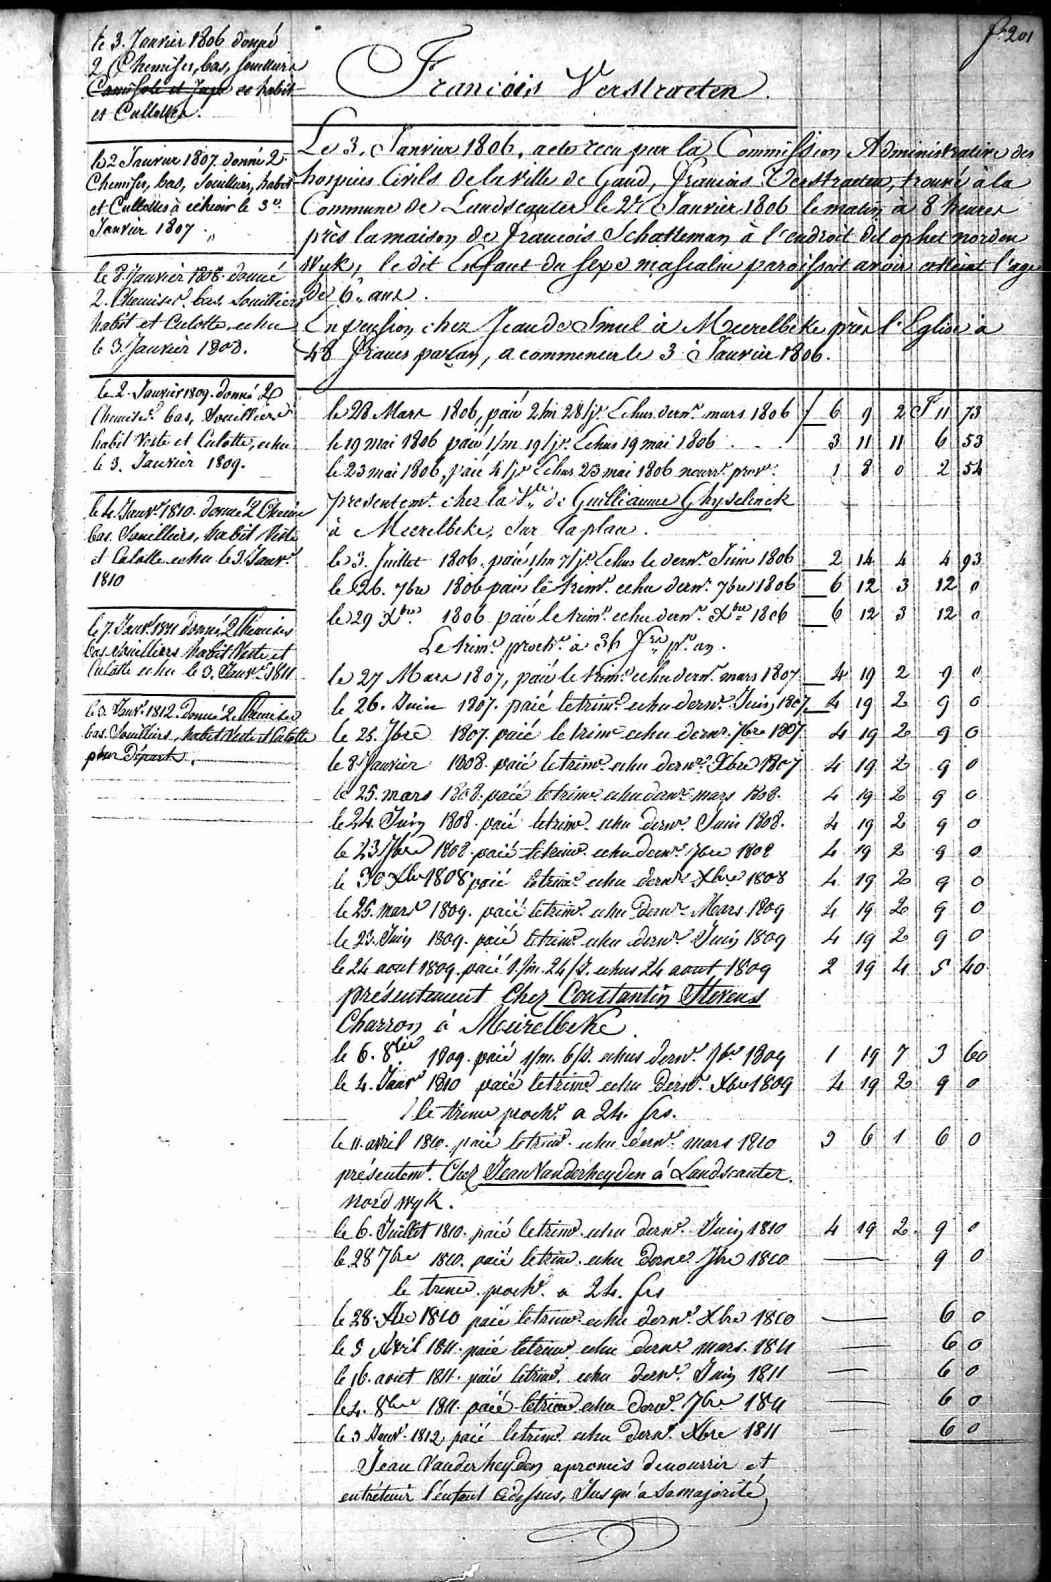 f. 201
le 3. Janvier 1806 donné
2 Chemises, bas, souliers
Camisole et Jupe et habit
et Culottes.
le 2 Janvier 1807 donné 2
Chemises, bas, Souillers, habit
et Culottes à echeoir le 3e
Janvier 1807
le 8 Janvier 1808 donné
2. Chemises, bas Souilliers
habit et Culotte, echu
le 3. Janvier 1808.
le 2. Janvier 1809. donné 2
Chemises bas, Souilliers
habit Veste et Culotte, echu
le 3. Janvier 1809.
le 4. Janvr 1810. donné 2 Chemise
bas. Souilliers, habit Veste
et Culotte echu le 3. Janvr
1810
le 7. Janvr 1811 donné 2 Chemises
bas Souilliers habit Veste et
Culotte echu le 3. Janvr 1811
le 3. Janvr 1812. donné 2 Chemises
bas. Souilliers, habit Veste et Culotte
pour Départ.
François Verstraeten.
Le 3. Janvier 1806, acte recu par la Commission Administrative des
hospices Civils de la ville de Gand, francois Verstraeten, trouvé à la
Commune de Landscauter le 2e Janvier 1806 le matin à 8 heures
près la maison de francois Schatteman à l'endroit dit op het norden
Wyk, le dit Enfant du sexe masculin paroissoit avoir atteint l'age
de 6 ans.
En pension, chez Jean de Smul à Meerelbeke près l'Eglise à
48 francs par an, a commencer le 3 Janvier 1806.
le 28 Mars 1806, paié 2/m 28/jrs Echus dernr mars 1806 f 6 9 2 F 11 73
le 19 mai 1806 paié 1/m 19/jrs Echus 19 mai 1806 . . . 3 11 11 6 53
le 23 mai 1806, paié 4/jrs Echus 23 mai 1806 nourr. prov. 1 8 0 2 54
presentemt chez la Ve de Guilliaume Ghyselinck
à Meerelbeke, sur la place.
le 3. Juillet 1806. paié 1/m 7/jrs Echus le dernr Juin 1806 2 14 4 4 93
le 26. 7bre 1806 paié le trimr echu dernr 7bre 1806 6 12 3 12 0
le 29 Xbre 1806 paié le trimr echu dernr Xbre 1806 6 12 3 12 0
Le trimr prochn à 36 frs pr an.
le 27 Mars 1807, paié le trimr echu dernr mars 1807 4 19 2 9 0
le 26. Juin 1807. paié le trimr echu dernr Juin 1807 4 19 2 9 0
le 25. 7bre 1807. paié le trimr echu dernr 7bre 1807 4 19 2 9 0
le 8 Janvier 1808 paié le trimr echu dernr Xbre 1807 4 19 2 9 0
le 25. mars 1808. paié le trimr echu dernr mars 1808. 4 19 2 9 0
le 24. Juin 1808. paié le trimr echu dernr Juin 1808. 4 19 2 9 0
le 23 7bre 1808 paié le trimr echu dernr 7bre 1808 4 19 2 9 0
le 30 Xbre 1808 paié le trimr echu dernr Xbre 1808 4 19 2 9 0
le 25. mars 1809. paié le trimr echu dernr Mars 1809 4 19 2 9 0
le 23. Juin 1809. paié le trimr echu dernr Juin 1809 4 19 2 9 0
le 24 aout 1809. paié 1./m. 24/j. echus 24 aout 1809 2 19 4 5 40
présentement Chez Constantin Stevens
Charron à Meirelbeke.
le 6. 8bre 1809. paié 1/m. 6/j. echus dernr 7bre 1809 1 19 7 3 60
le 4. Janvr 1810 paié le trimr echu dernr Xbre 1809 4 19 2 9 0
le trime prochn a 24. frs.
le 11. avril 1810. paié le trimr echu dernr mars 1810 3 6 1 6 0
présentemt Chez Jean Vanderheyden à Landscauter.
Nord wyk.
le 6. Juillet 1810. paié le trimr echu dernr Juin 1810 4 19 2. 9 0
le 28 7bre 1810. paié le trimr echu dernr 7bre 1810 9 0
le trime. prochn a 24. frs
le 28. Xbre 1810 paié le trimr echu dernr Xbre 1810 6 0
le 3 Avril 1811. paié le trimr echu dernr mars. 1811 6 0
le 16. aout 1811. paié le trimr echu dernr Juin 1811 6 0
le 4. 8bre 1811. paié le trimr echu dernr 7bre 1811 6 0
le 3 Janvr 1812 paié le trimr echu dernr Xbre 1811 6 0
Jean Vanderheyden a promis de nourrir et
entrétenir l'enfant cidessus, Jusqu'a sa majorité